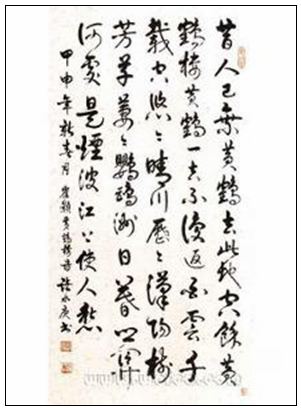 昔人已乘黄鶴去此地空餘黄
鶴樓黄鶴一去不復返白雲千
載空悠々晴川歷々漢陽樹
芳草萋々鸚鵡洲日暮鄉關
何處是煙波江上使人愁
甲申年新春月 崔顥黄鶴樓詩 水庚书